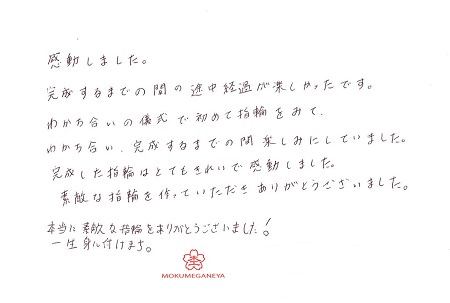 感動しました。
完成するまでの間の途中経過が楽しかったです。
わかち合いの儀式で初めて指輪をみて、
わかち合い、完成するまでの間楽しみにしていました。
完成した指輪はとてもきれいで感動しました。
素敵な指輪を作っていただきありがとうございました。
本当に素敵な指輪をありがとうございました!
一生身に付けます。
MOKUMEGANEYA